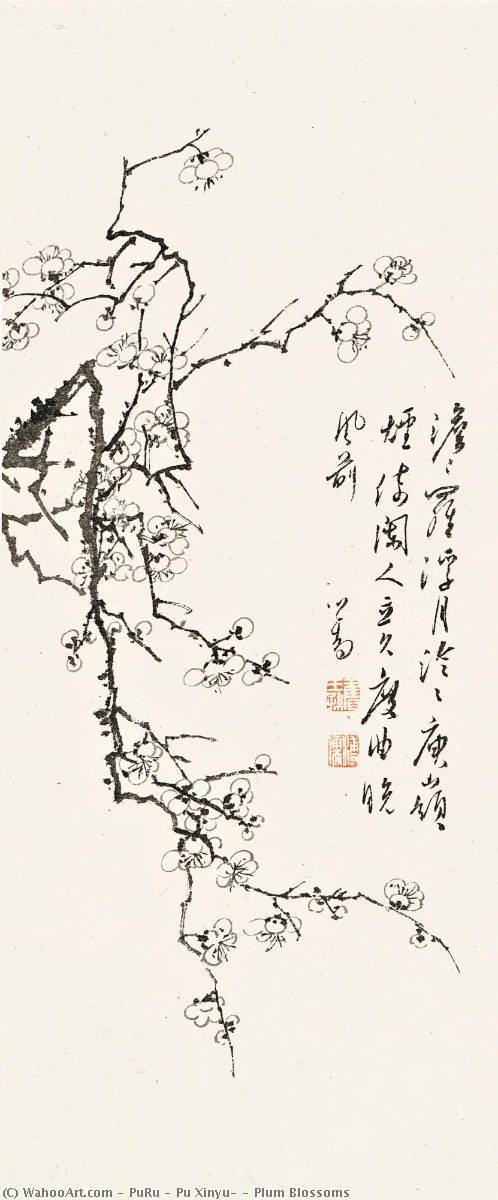 澹〻羅浮月泠〻庾嶺
煙倚闌人立久度曲晚
風前
心畬
舊王孫
溥儒
(C) WahooArt.com - PuRu - Pu Xinyu- - Plum Blossoms